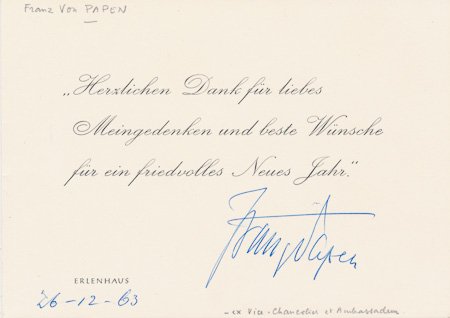 Franz Von PAPEN
„Herzlichen Dank für liebes
Meingedenken und beste Wünsche
für ein friedvolles Neues Jahr."
Franz Papen
ERLENHAUS
26-12-63
- ex Vice-Chancelier et Ambassadeur